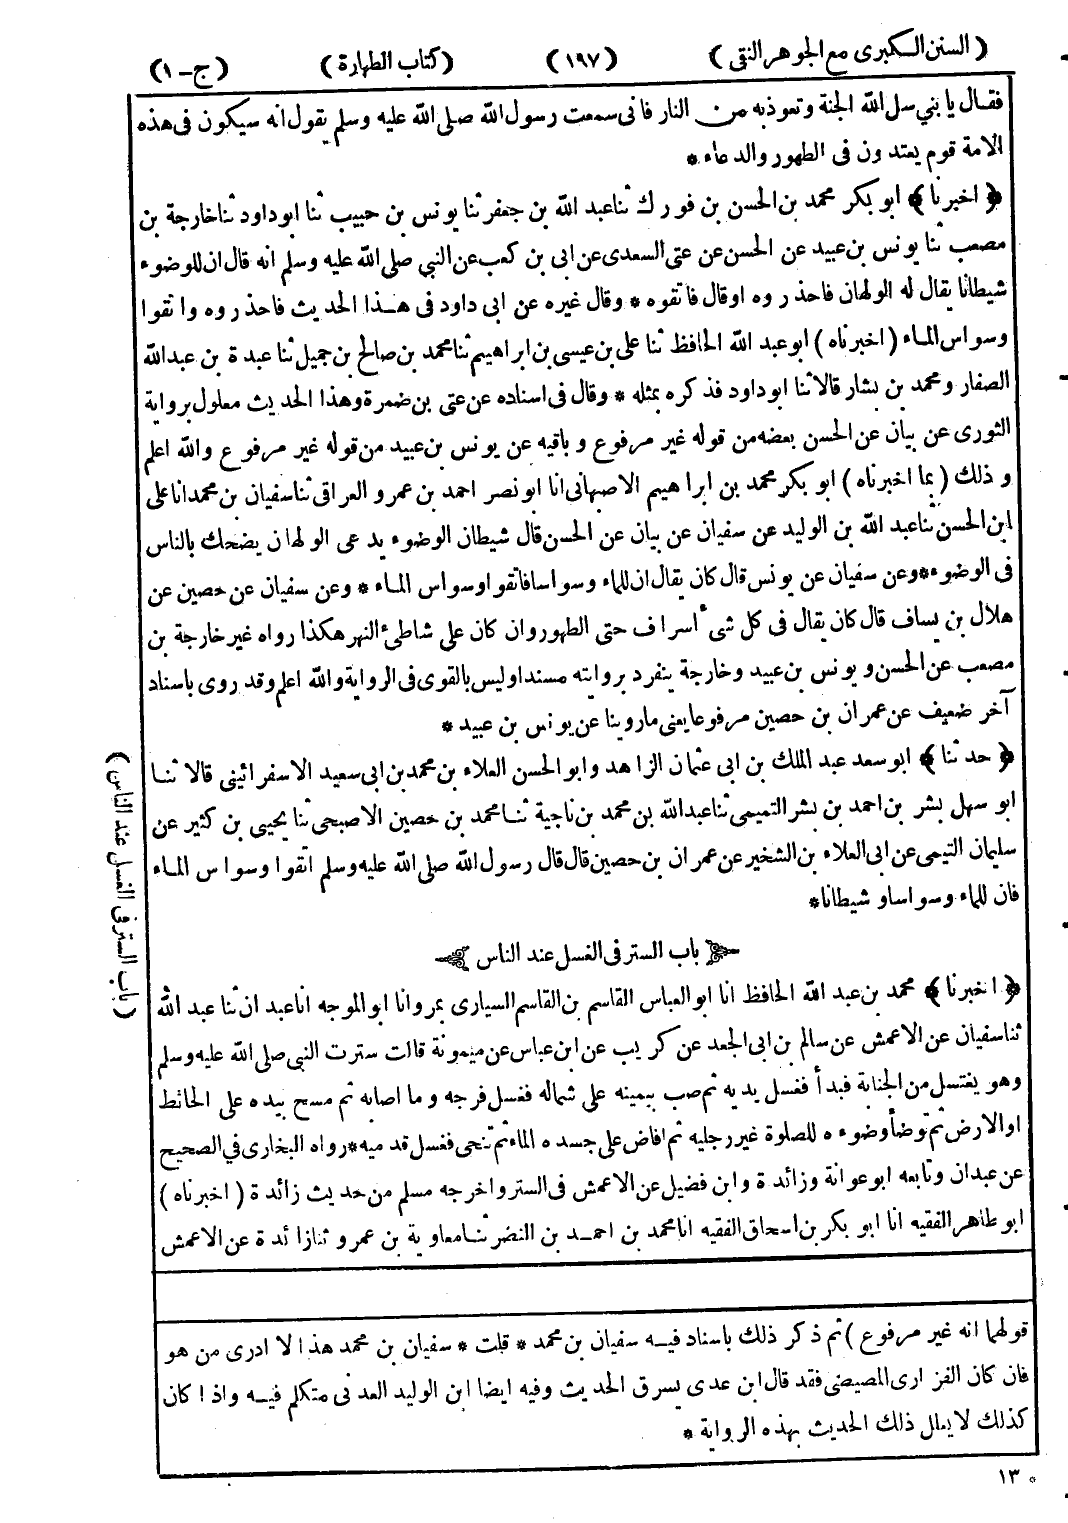 (السنن الكبرى مع الجوهر النقى) (١٩٧) (كتاب الطهارة) (ج-١)
فقال يا بني سل الله الجنة وتعوذ به من النار فانى سمعت رسول الله صلى الله عليه وسلم يقول انه سيكون فى هذه
الامة قوم يعتدون فى الطهور والدعاء *
﴿ اخبرنا ﴾ ابو بكر محمد بن الحسن بن فورك ثنا عبد الله بن جعفر ثنا يونس بن حبيب ثنا ابو داود ثنا خارجة بن
مصعب ثنا يونس بن عبيد عن الحسن عن عتى السعدى عن ابى بن كعب عن النبي صلى الله عليه وسلم انه قال ان للوضوء
شيطانا يقال له الولهان فاحذروه او قال فاتقوه * وقال غيره عن ابى داود فى هذا الحديث فاحذروه واتقوا
وسواس الماء (اخبرناه) ابو عبد الله الحافظ ثنا على بن عيسى بن ابراهيم ثنا محمد بن صالح بن جميل ثنا عبدة بن عبد الله
الصفار ومحمد بن بشار قالا ثنا ابو داود فذكره بمثله * وقال فى اسناده عن عتى بن ضمرة وهذا الحديث معلول برواية
الثورى عن بيان عن الحسن بعضه من قوله غير مرفوع وباقيه عن يونس بن عبيد من قوله غير مرفوع والله اعلم
وذلك (بما اخبرناه) ابو بكر محمد بن ابراهيم الاصبهانى انا ابو نصر احمد بن عمرو العراقى ثنا سفيان بن محمد انا على
ابن الحسن ثنا عبد الله بن الوليد عن سفيان عن بيان عن الحسن قال شيطان الوضوء يدعى الولهان يضحك بالناس
فى الوضوء * وعن سفيان عن يونس قال كان يقال ان للماء وسواسا فاتقوا وسواس الماء * وعن سفيان عن حصين عن
هلال بن يساف قال كان يقال فى كل شئ اسراف حتى الطهور وان كان على شاطئ النهر هكذا رواه غير خارجة بن
مصعب عن الحسن ويونس بن عبيد وخارجة ينفرد بروايته مسندا وليس بالقوى فى الرواية والله اعلم وقد روى باسناد
آخر ضعيف عن عمران بن حصين مرفوعا يعنى ما روينا عن يونس بن عبيد *
﴿ حدثنا ﴾ ابو سعد عبد الملك بن ابى عثمان الزاهد وابو الحسن العلاء بن محمد بن ابى سعيد الاسفرائينى قالا ثنا
ابو سهل بشر بن احمد بن بشر التميمى ثنا عبد الله بن محمد بن ناجية ثنا محمد بن حصين الاصبحى ثنا يحيى بن كثير عن
سليمان التيمى عن ابى العلاء بن الشخير عن عمران بن حصين قال قال رسول الله صلى الله عليه وسلم اتقوا وسواس الماء
فان للماء وسواسا وشيطانا *
باب الستر فى الغسل عند الناس
﴿ اخبرنا ﴾ محمد بن عبد الله الحافظ انا ابو العباس القاسم بن القاسم السيارى بمرو انا ابو الموجه انا عبدان ثنا عبد الله
ثنا سفيان عن الاعمش عن سالم بن ابى الجعد عن كريب عن ابن عباس عن ميمونة قالت سترت النبي صلى الله عليه وسلم
وهو يغتسل من الجنابة فبدأ فغسل يديه ثم صب بيمينه على شماله فغسل فرجه وما اصابه ثم مسح بيده على الحائط
او الارض ثم توضأ وضوءه للصلوة غير رجليه ثم افاض على جسده الماء ثم تنحى فغسل قدميه * رواه البخارى في الصحيح
عن عبدان وتابعه ابو عوانة وزائدة وابن فضيل عن الاعمش فى الستر واخرجه مسلم من حديث زائدة (اخبرناه)
ابو طاهر الفقيه انا ابو بكر بن اسحاق الفقيه انا محمد بن احمد بن النضر ثنا معاوية بن عمرو ثنا زائدة عن الاعمش
(باب الستر فى الغسل عند الناس)
قولهما انه غير مرفوع) ثم ذكر ذلك باسناد فيه سفيان بن محمد * قلت * سفيان بن محمد هذا لا ادرى من هو
فان كان الفزارى المصيصى فقد قال ابن عدى يسرق الحديث وفيه ايضا ابن الوليد العدنى متكلم فيه واذا كان
كذلك لا يعلل ذلك الحديث بهذه الرواية *
١٣